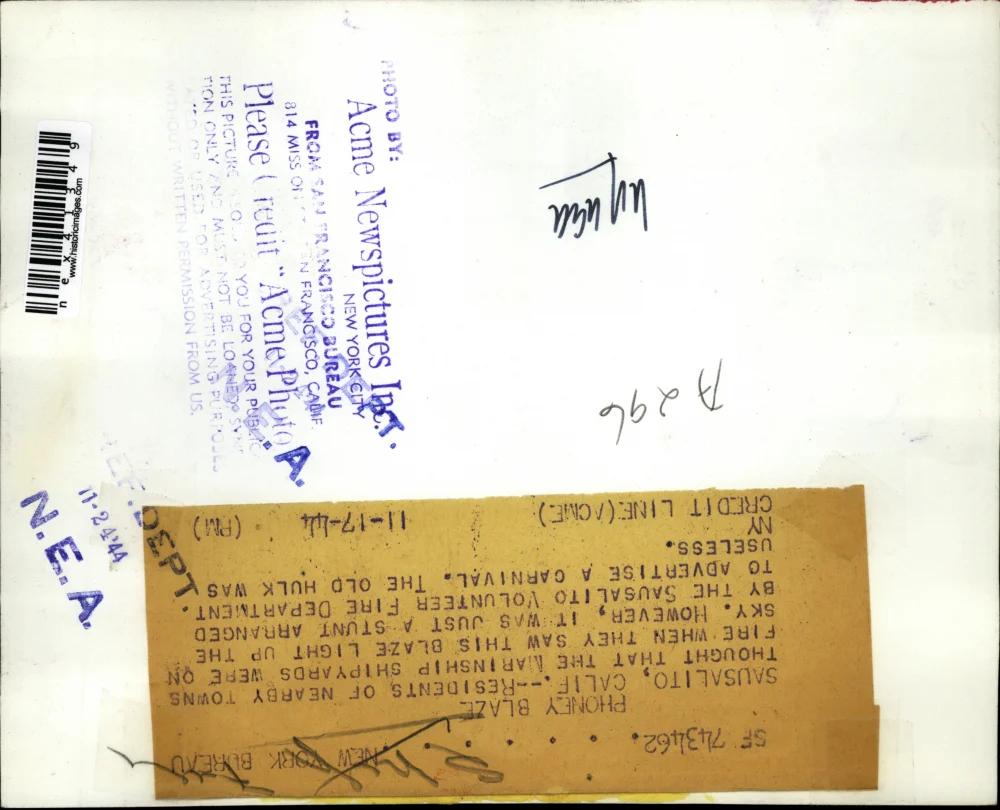 PHOTO BY:
Acme Newspictures Inc.
NEW YORK CITY
FROM SAN FRANCISCO BUREAU
814 MISSION FRANCISCO, CALIF.
Please Credit "Acme Photo
THIS PICTURE YOU FOR YOUR PUBLIC
TION ONLY AND MUST NOT BE LOANED SYN
OR USED FOR ADVERTISING PURPOSES
WITHOUT WRITTEN PERMISSION FROM US.
nex41349
www.historicimages.com
A296
REF. DEPT.
11-24'44
N.E.A.
SF 743462. . . . . . NEW YORK BUREAU
PHONEY BLAZE
SAUSALITO, CALIF.--RESIDENTS OF NEARBY TOWNS
THOUGHT THAT THE MARINSHIP SHIPYARDS WERE ON
FIRE WHEN THEY SAW THIS BLAZE LIGHT UP THE
SKY. HOWEVER, IT WAS JUST A STUNT ARRANGED
BY THE SAUSALITO VOLUNTEER FIRE DEPARTMENT
TO ADVERTISE A CARNIVAL. THE OLD HULK WAS
USELESS.
NY
CREDIT LINE(ACME) 11-17-44 (RM)